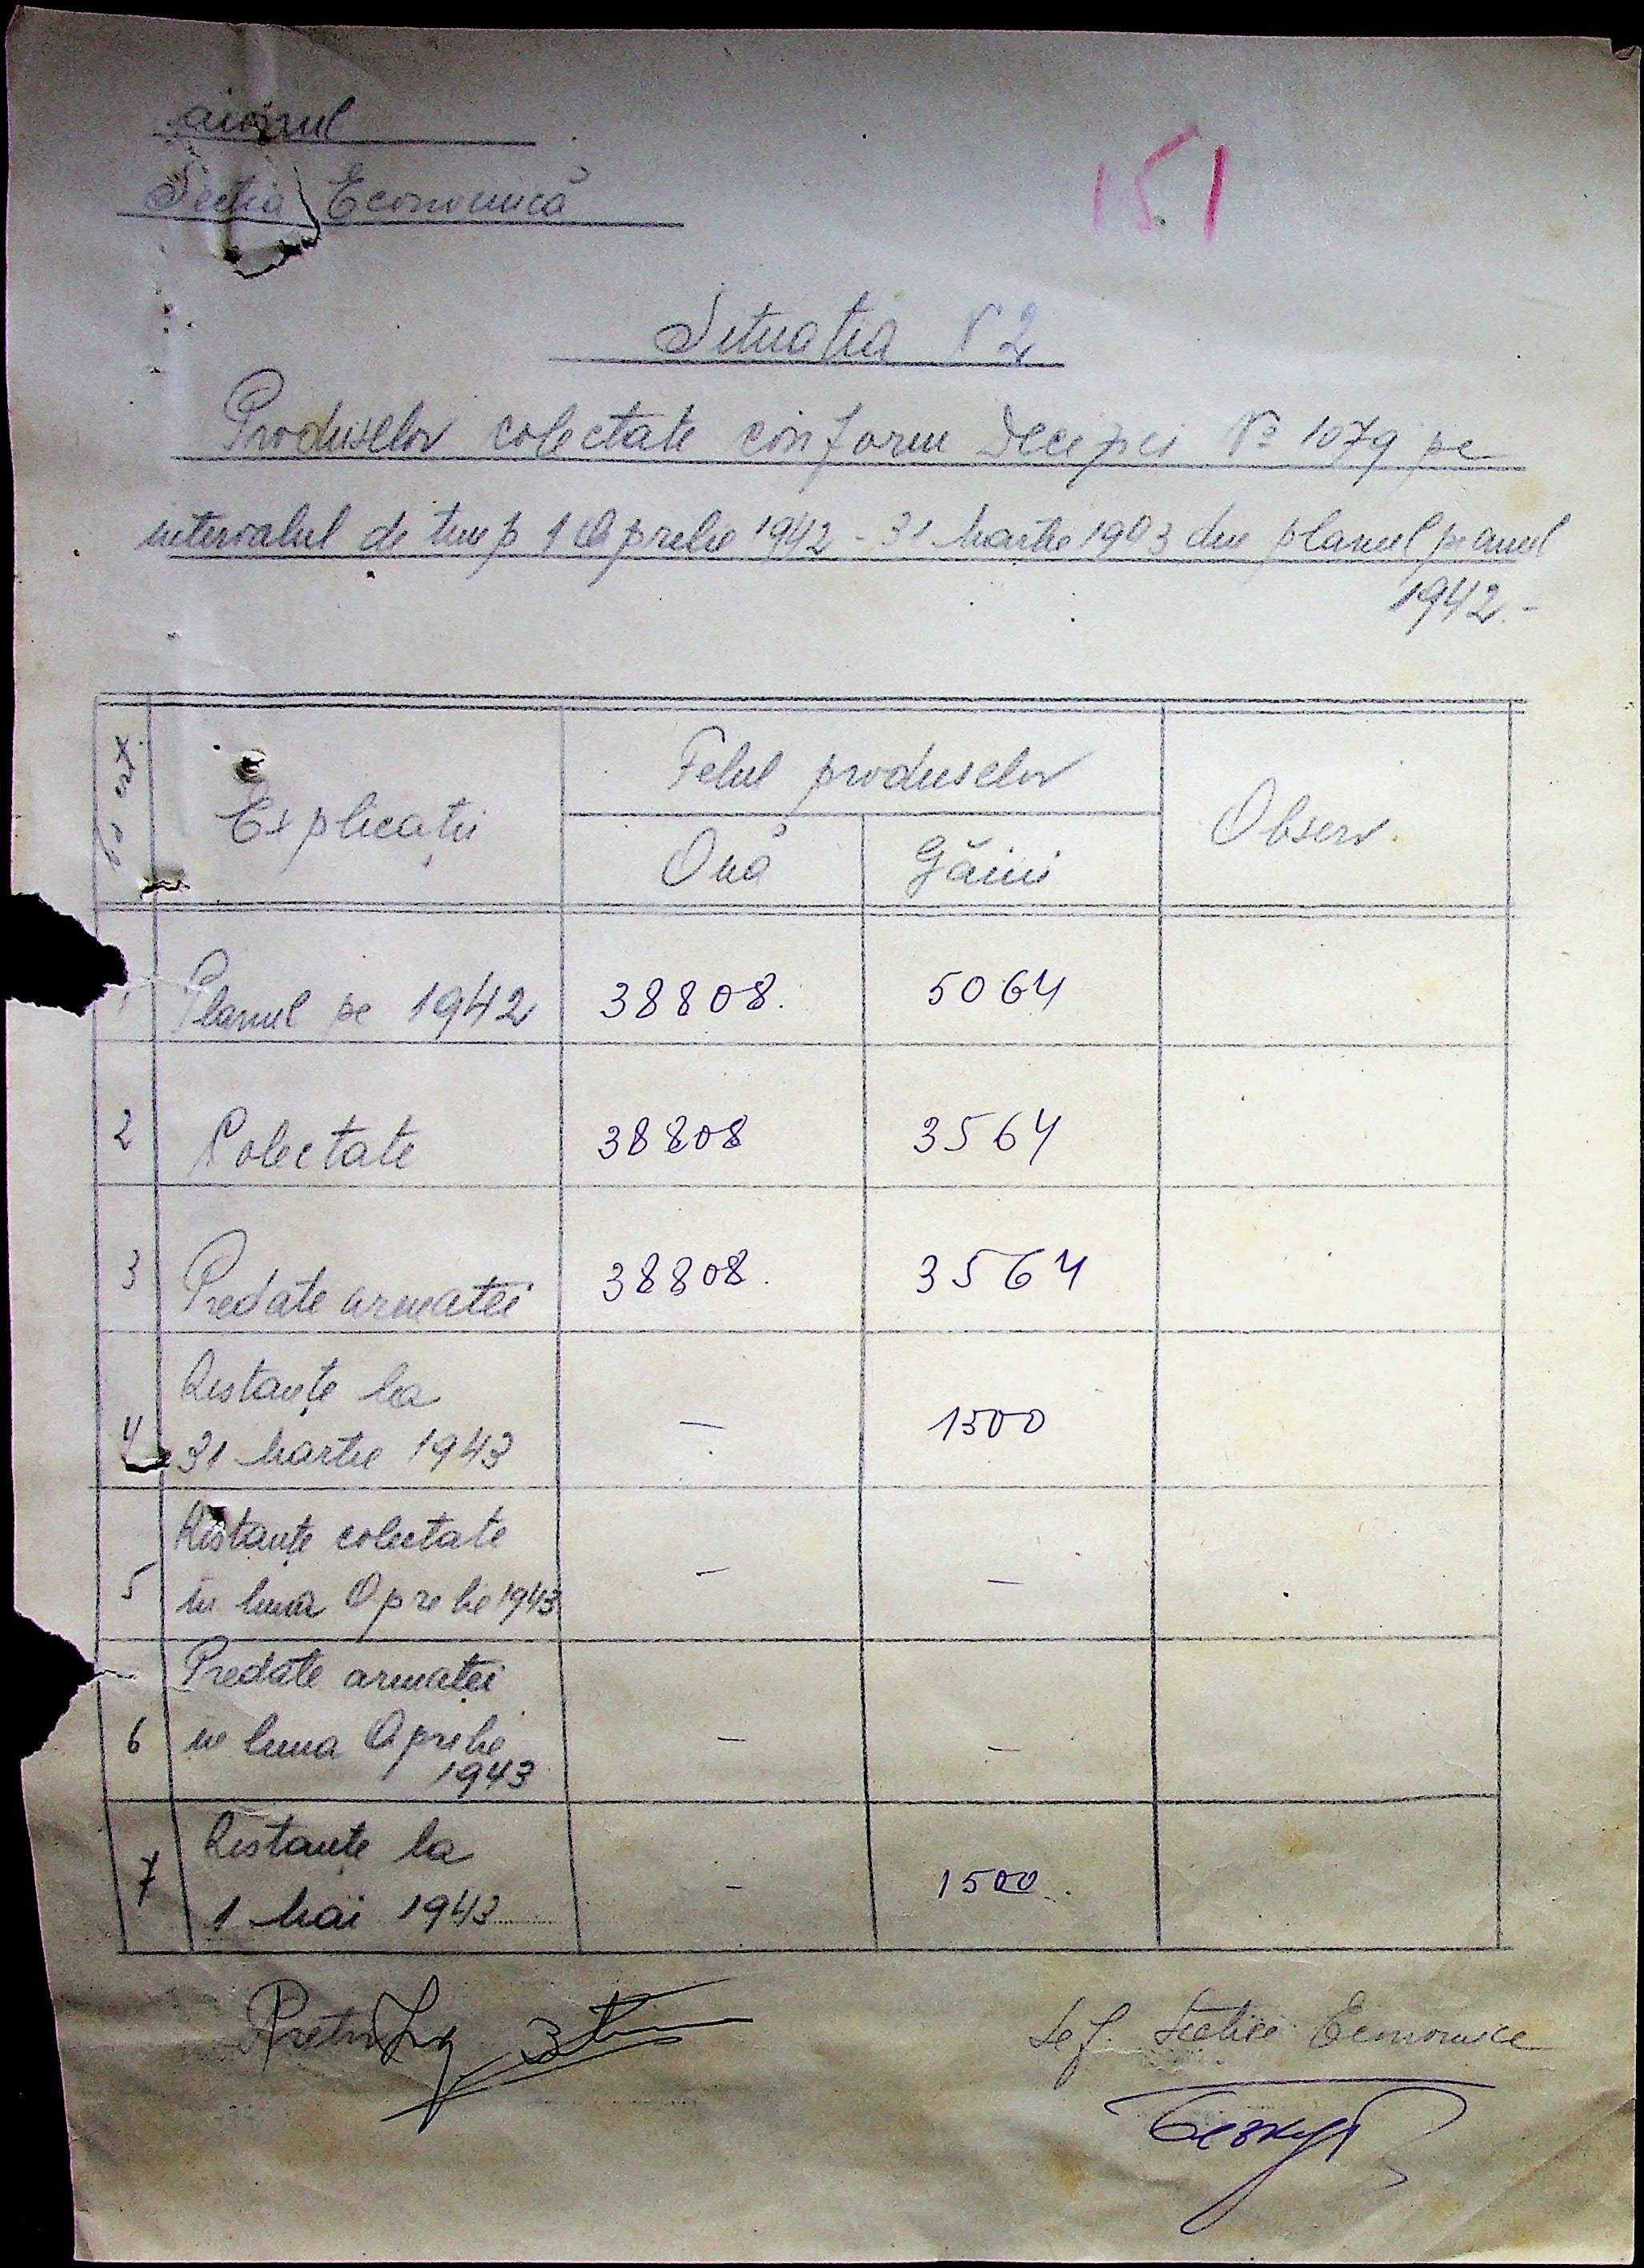 aionul
Secția Economică
151
Situația № 2
Produselor colectate conform Deciziei № 1079 pe
intervalul de timp 1 Aprilie 1942 - 31 Martie 1943 din planul pe anul
1942.-
№ ort.
Explicații
Felul produselor
Observ.
Ouă
Găini
1
Planul pe 1942
38808.
5064
2
Colectate
38808
3564
3
Predate armatei
38808.
3564
Restanțe la
4
31 Martie 1943
—
1500
Restanțe colectate
5
în luna Aprilie 1943
—
—
Predate armatei
6
în luna Aprilie
1943
—
—
Restanțe la
7
1 Mai 1943
-
1500.
Pretor
Șef. Secției Economice